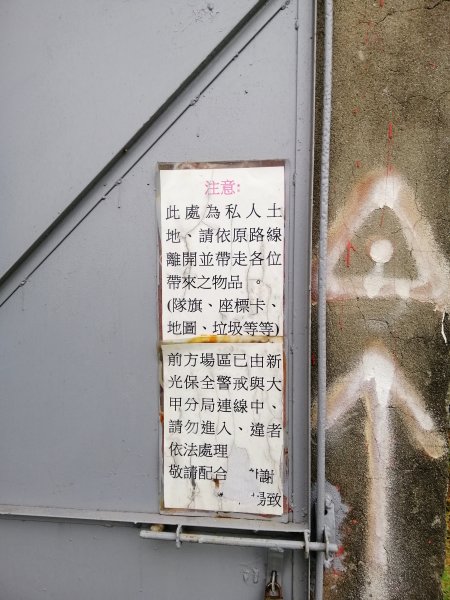 注意:
此處為私人土
地、請依原路線
離開並帶走各位
帶來之物品。
(隊旗、座標卡、
地圖、垃圾等等)
前方場區已由新
光保全警戒與大
甲分局連線中、
請勿進入、違者
依法處理
敬請配合 謝
場致